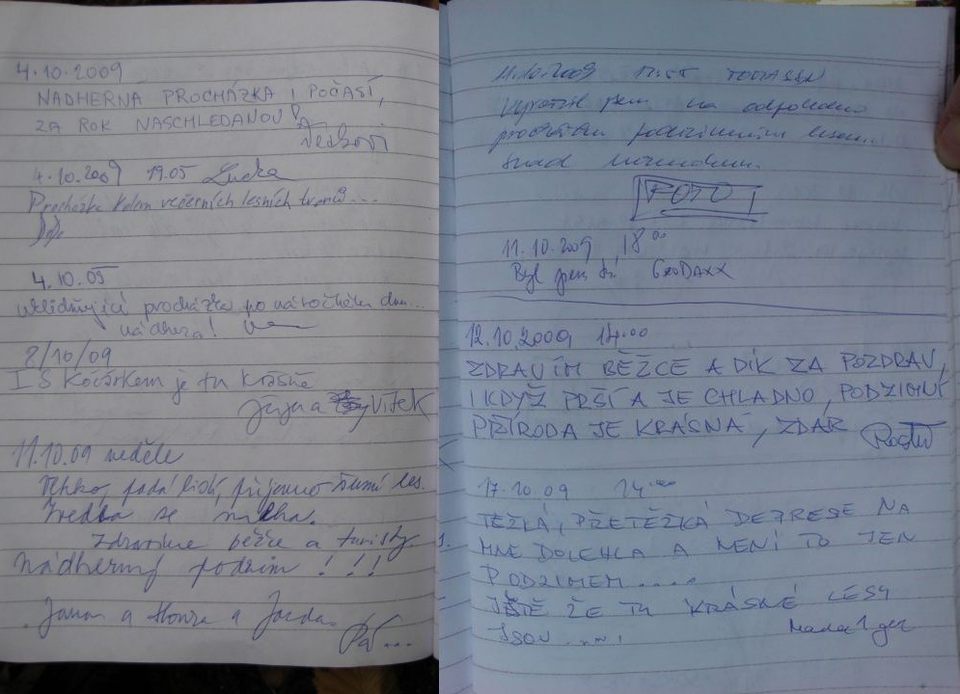 4.10.2009
NADHERNA PROCHÁZKA I POČASÍ,
ZA ROK NASCHLEDANOU
4.10.2009 19.05 Lucka
Procházka kolem večerních lesních tvorů...
4.10.09
uklidňující procházka po náročném dnu...
nádhera!
8/10/09
I S kočárkem je tu krásně
a VÍTEK
11.10.09 neděle
padá listí, příjemně šumí les.
Zvedla se mlha.
Zdravíme běžce a turisty.
Nádherný podzim !!!
Jana a Honza a Jarda.
Pa...
11.10.2009
Vypravil jsem na odpolední
procházku podzimním lesem..
FOTO
11.10.2009 18 00
Byl jsem tu GEODAXX
12.10.2009 14.00
ZDRAVÍM BĚŽCE A DÍK ZA POZDRAV,
I KDYŽ PRŠÍ A JE CHLADNO, PODZIMNÍ
PŘÍRODA JE KRÁSNÁ, ZDAR
17.10.09
TĚŽKÁ, PŘETĚŽKÁ DEPRESE NA
MNE DOLEHLA A NENÍ TO JEN
PODZIMEM.....
JEŠTĚ ŽE TU KRÁSNÉ LESY
JSOU .....